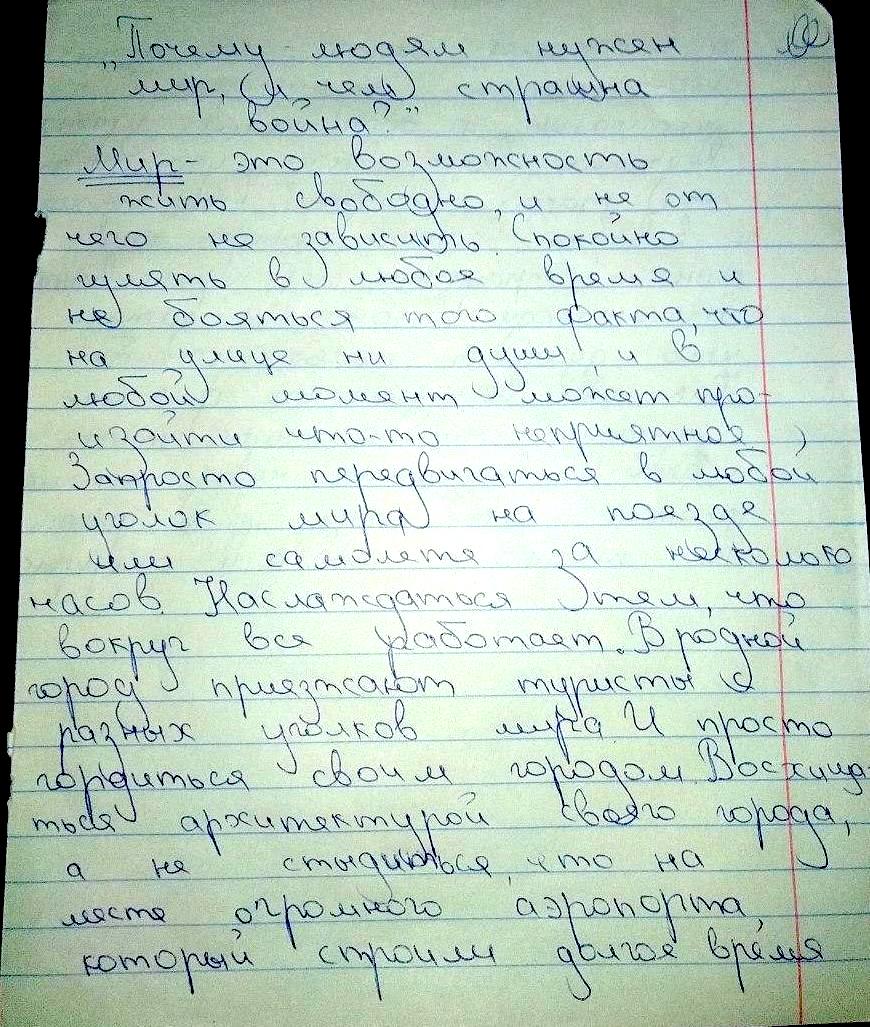 „Почему людям нужен
мир, (и чем) страшна
война?"
Мир - это возможность
жить свободно, и не от
чего не зависить. Спокойно
гулять в любое время и
не бояться того факта, что
на улице ни души и в
любой момент может про-
изойти что-то неприятное,
Запросто передвигаться в любой
уголок мира на поезде
или самолете за несколько
часов. Наслаждаться этем, что
вокруг все работает. В родной
город приезжают туристы с
разных уголков мира. И просто
гордиться своим городом. Восхищ-
ться архитектурой своего города,
а не стыдиться, что на
месте огромного аэропорта,
который строили долгое время